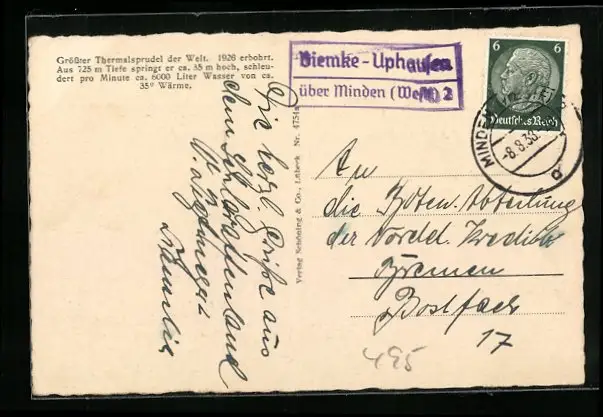 Größter Thermalsprudel der Welt. 1926 erbohrt.
Aus 725 m Tiefe springt er ca. 35 m hoch, schleu-
dert pro Minute ca. 6000 Liter Wasser von ca.
35° Wärme.
Diemke-Uphausen
über Minden (Westf) 2
6 6
Deutsches Reich
MINDEN
-8.8.38
Verlag Schöning & Co., Lübeck Nr. 4754
Die herzl. Grüße aus
dem
Familie
An
die Boten-Abteilung
der Nordd. Kreditb
Bremen
Postfach
17
495